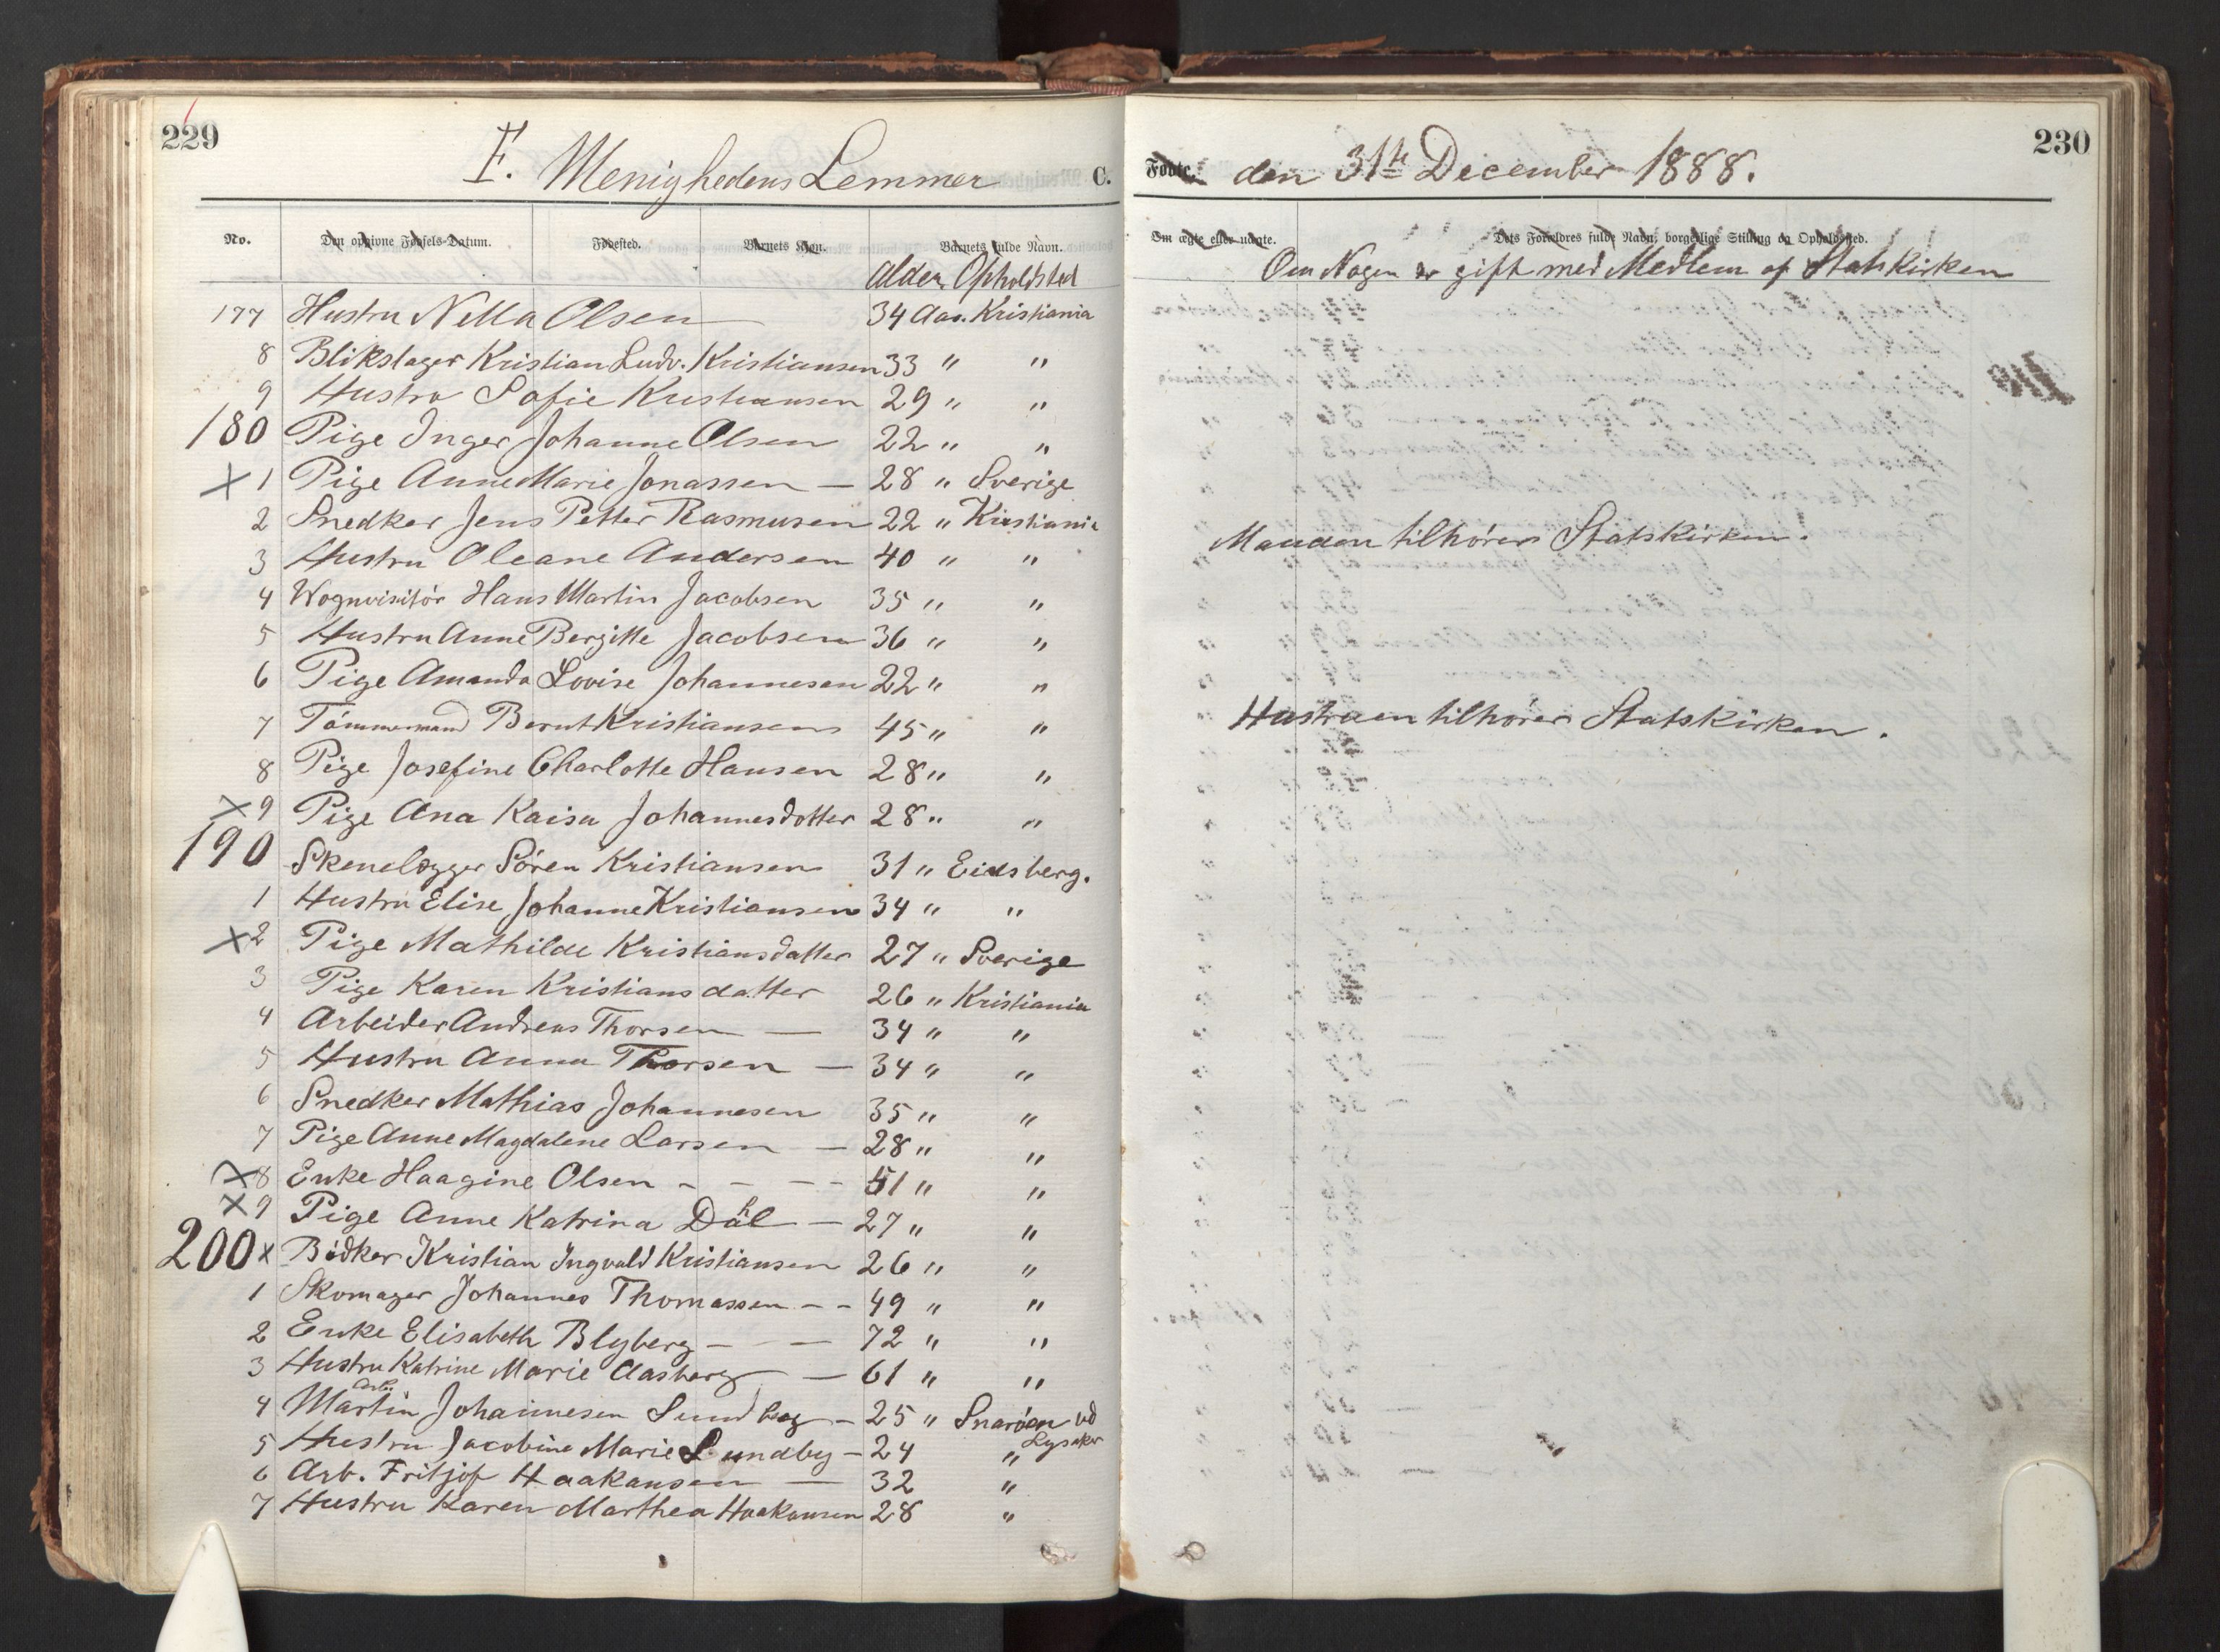 229
F. Menighedens Lemmer C.
No. Den opgivne Fødsels-Datum. Fødested. Barnets Kjøn. Barnets fulde Navn.
Alder Opholdsted
177 Hustru Nella Olsen 34 Aar. Kristiania
8 Blikslager Kristian Ludv. Kristiansen 33 " "
9 Hustru Sofie Kristiansen 29 " "
180 Pige Inger Johanne Olsen 22 " "
X 1 Pige Anne Marie Jonassen — 28 " Sverige
2 Snedker Jens Petter Rasmusen 22 " Kristiania
3 Hustru Oleane Andersen 40 " "
4 Wognvisitør Hans Martin Jacobsen 35 " "
5 Hustru Anne Bergitte Jacobsen 36 " "
6 Pige Amanda Lovise Johannesen 22 " "
7 Tømmermand Bernt Kristiansen 45 " "
8 Pige Josefine Charlotte Hansen 28 " "
X 9 Pige Ana Kaisa Johannesdotter 28 " "
190 Skenelægger Søren Kristiansen 31 " Eidsberg.
1 Hustru Elise Johanne Kristiansen 34 " "
X 2 Pige Mathilde Kristiansdatter 27 " Sverige
3 Pige Karen Kristiansdatter 26 " Kristiania
4 Arbeider Andreas Thorsen — 34 " "
5 Hustru Anna Thorsen — 34 " "
6 Snedker Mathias Johannesen 35 " "
7 Pige Anne Magdalene Larsen — 28 " "
X 8 Enke Haagine Olsen - - - - 51 " "
X 9 Pige Anne Katrina Dahl — 27 " "
200 x Bødker Kristian Ingvald Kristiansen 26 " "
1 Skomager Johannes Thomassen - - 49 " "
2 Enke Elisabeth Blyberg — — 72 " "
3 Hustru Katrine Marie Aasberg — 61 " "
Arb.
4 Martin Johannesen Lundby — 25 " Snarøen ved
Lysaker
5 Hustru Jacobine Marie Lundby — 24 "
6 Arb. Fritjof Haakansen — 32 "
7 Hustru Karen Marthea Haakansen 28 "
230
Fødte. den 31te December 1888.
Om ægte eller uægte. Dets Forældres fulde Navn, borgerlige Stilling og Opholdssted.
Om Nogen er gift med Medlem af Statskirken
Manden tilhører Statskirken.
Hustruen tilhører Statskirken.